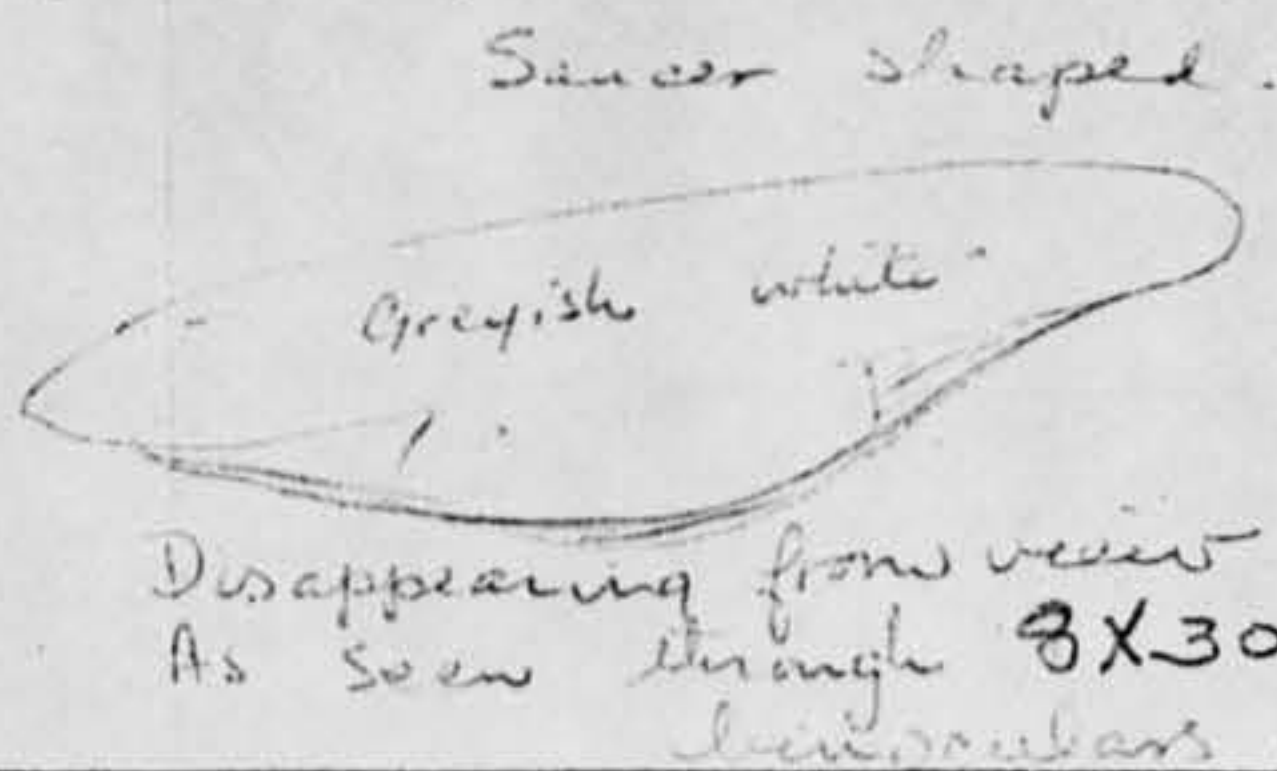 Saucer shaped.
Greyish white
Disappearing from view
As seen through 8X30
binoculars